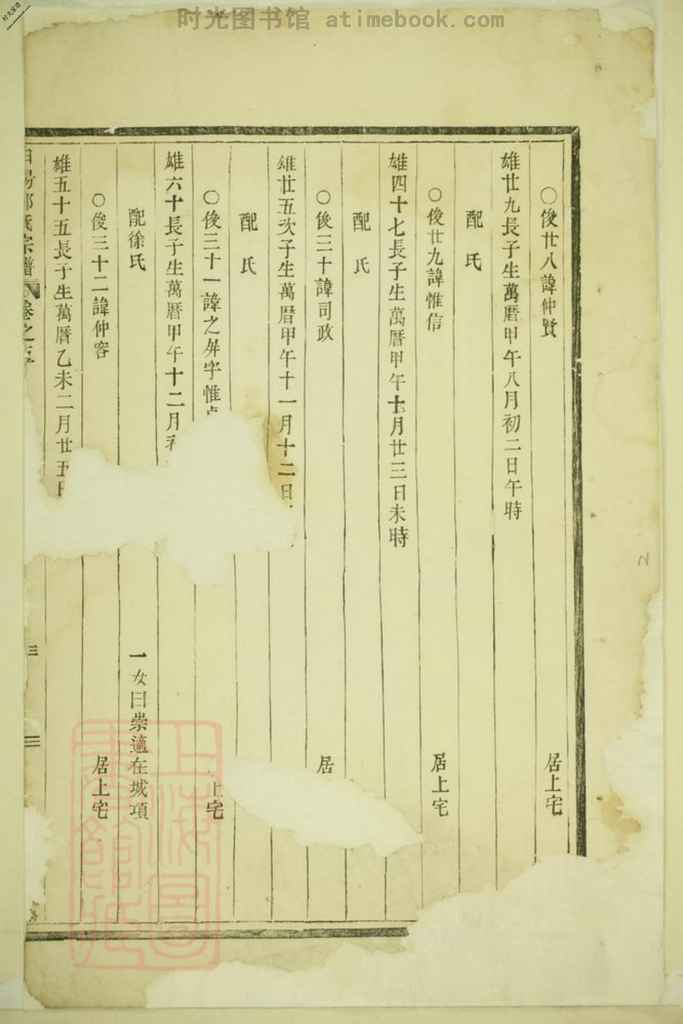 时光图书馆 atimebook.com
○俊廿八諱仲賢 居上宅
雄廿九長子生萬曆甲午八月初二日午時
配 氏
○俊廿九諱惟信 居上宅
雄四十七長子生萬曆甲午十月廿三日未時
配 氏
○俊三十諱司政 居
雄廿五次子生萬曆甲午十一月十二日
配 氏
○俊三十一諱之屏字惟 上宅
雄六十長子生萬曆甲午十二月
配徐氏 一女曰崇適在城項
○俊三十二諱仲容 居上宅
雄五十五長子生萬曆乙未二月廿五日
氏宗譜 卷之 三